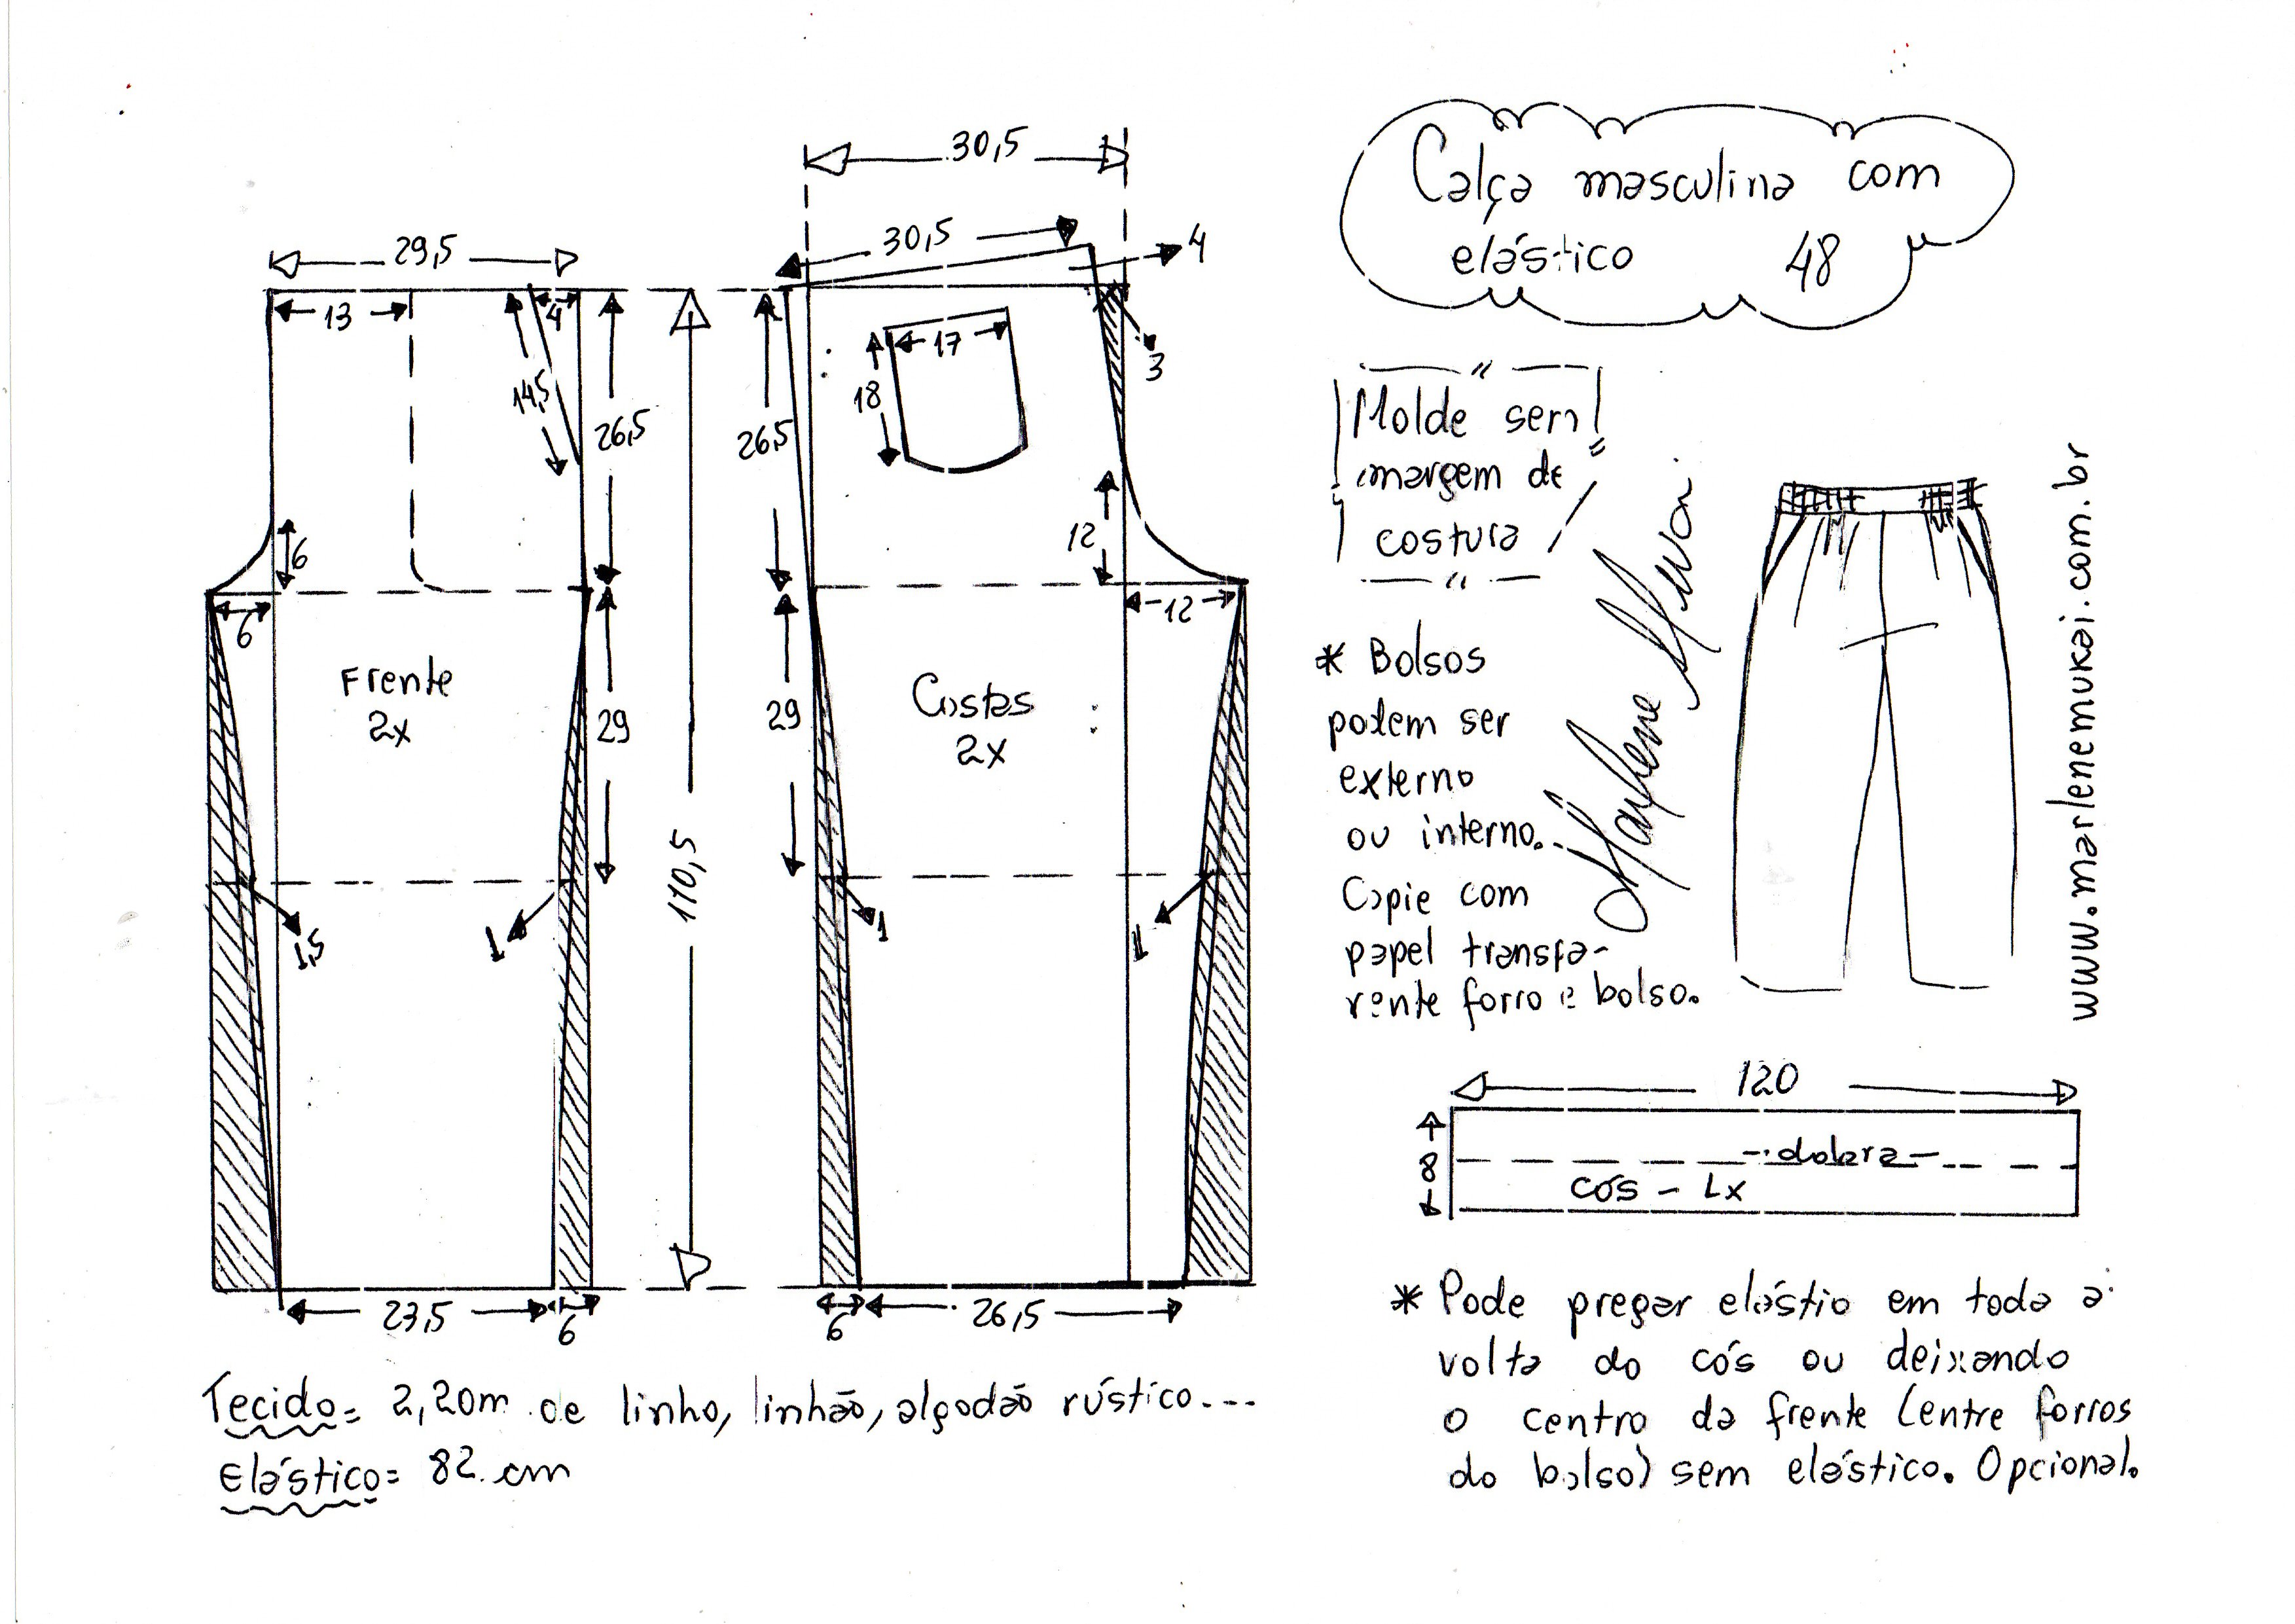 30,5
30,5
4
29,5
13
4
14,5
26,5
26,5
17
18
3
6
6
12
12
Frente
2x
29
110,5
29
Costas
2x
1,5
1
1
1
23,5
6
6
26,5
Tecido= 2,20m de linho, linhão, algodão rústico...
Elástico= 82 cm
Calça masculina com
elástico 48
Molde sem
margem de
costura
* Bolsos
podem ser
externo
ou interno.
Copie com
papel transpa-
rente forro e bolso.
Marlene Mukai
www.marlenemukai.com.br
120
8
dobra
cós - 1x
* Pode pregar elástio em toda a
volta do cós ou deixando
o centro da frente (entre forros
do bolso) sem elástico. Opcional.